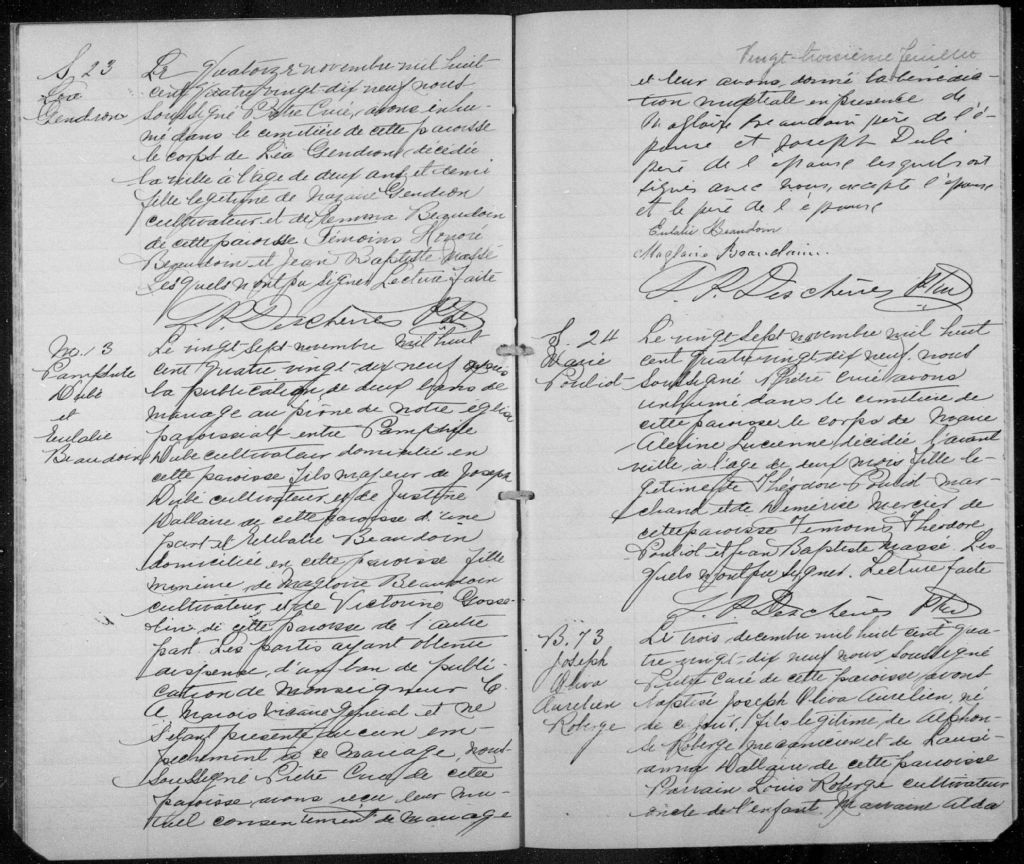 S. 23
Léa
Gendron
Le Quatorze novembre mil huit
cent quatre vingt-dix neuf nous
soussigné Prêtre Curé, avons inhu-
mé dans le cimetière de cette paroisse
le corps de Léa Gendron, décédée
la veille à l'age de deux ans et demi
fille legitime de Nazaire Gendron
cultivateur et de Gemma Beaudoin
de cette paroisse Témoins Honoré
Beaudoin et Jean Baptiste Massé
Lesquels n'ont pu signer Lecture faite
J. P. Deschènes Ptre
M. 13
Pamphile
Dubé
et
Eulalie
Beaudoin
Le vingt-sept novembre mil huit
cent quatre vingt-dix neuf après
la publication de deux bans de
mariage au prône de notre église
paroissiale entre Pamphile
Dubé cultivateur domicilié en
cette paroisse fils majeur de Joseph
Dubé cultivateur et de Justine
Dallaire de cette paroisse d'une
part et Eulalie Beaudoin
domiciliée en cette paroisse fille
mineure de Magloire Beaudoin
cultivateur et de Victorine Gosse-
lin de cette paroisse de l'autre
part. Les parties ayant obtenu
dispense d'un ban de publi-
cation de Monseigneur C.
A Marois Vicaire Général et ne
s'étant presenté aucun em-
pechement à ce mariage, nous
soussigné Prêtre Curé de cette
paroisse, avons reçu leur mu-
tuel consentement de mariage
Vingt-troisième feuillet
et leur avons donné la bénédic-
tion nuptiale en presence de
Magloire Beaudoin père de l'é-
pouse et Joseph Dubé
père de l'epoux lesquels ont
signés avec nous, excepté l'époux
et le père de l'époux
Eulalie Beaudoin
Magloire Beaudoin.
J. P. Deschènes Ptre
S. 24
Marie
Pouliot
Le vingt sept novembre mil huit
cent quatre vingt-dix neuf nous
soussigné Prêtre curé avons
inhumé dans le cimetière de
cette paroisse le corps de Marie
Alexine Lucienne décédée l'avant
veille, à l'age de deux mois fille le-
getime de Théodore Pouliot mar-
chand et de Démérise Mercier de
cette paroisse Témoins Théodore
Pouliot et Jean Baptiste Massé. Les-
quels n'ont pu signer. Lecture faite
J. P. Deschènes Ptre
B. 73
Joseph
Oliva
Aurelien
Roberge
Le trois decembre mil huit cent qua-
tre vingt-dix neuf nous, soussigné
Prêtre Curé de cette paroisse, avons
baptisé Joseph Oliva Aurelien, né
de ce jour, fils légitime de Alphon-
se Roberge mecanicien et de Lausé-
anna Dallaire de cette paroisse
Parrain Louis Roberge cultivateur
oncle de l'enfant. Marraine Alda